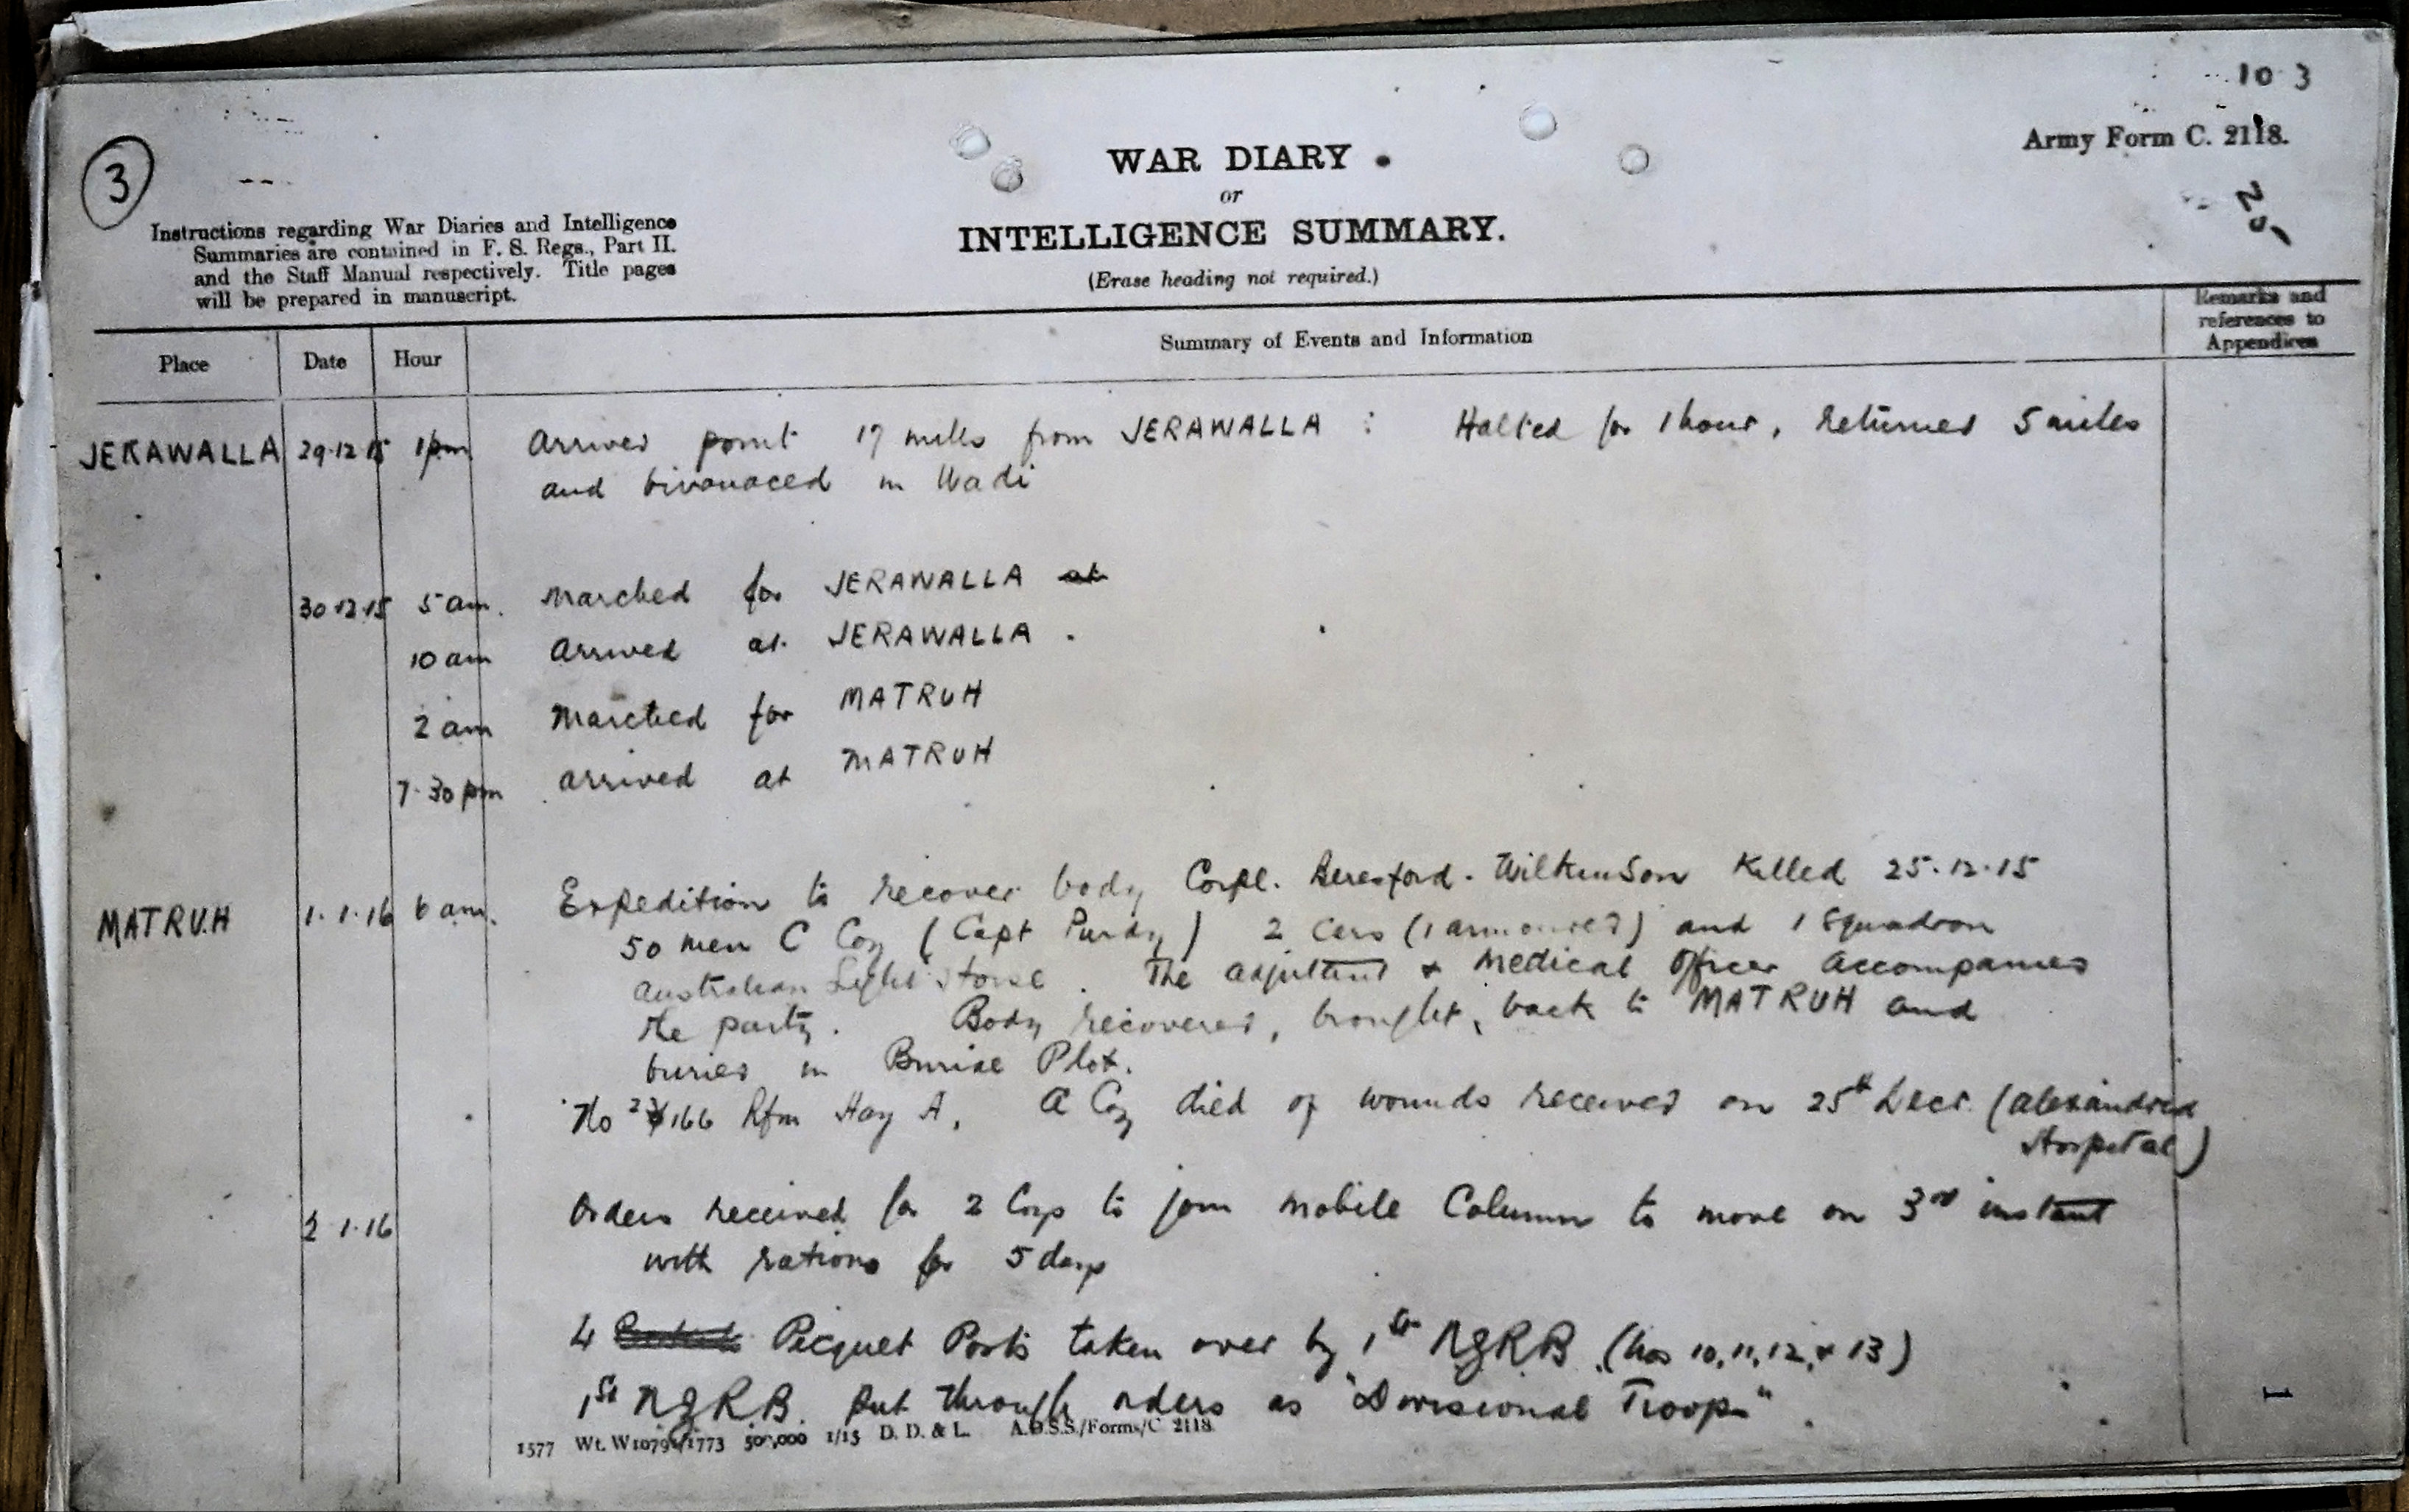 10 3
Army Form C. 2118.
3
WAR DIARY
or
INTELLIGENCE SUMMARY.
(Erase heading not required.)
Instructions regarding War Diaries and Intelligence
Summaries are contained in F. S. Regs., Part II.
and the Staff Manual respectively. Title pages
will be prepared in manuscript.
Place Date Hour Summary of Events and Information Remarks and references to Appendices
JERAWALLA 29.12.15 1pm Arrived point 17 miles from JERAWALLA : Halted for 1 hour, returned 5 miles
and bivouaced in Wadi
30.12.15 5 am. Marched for JERAWALLA at
10 am Arrived at JERAWALLA .
2 am Marched for MATRUH
7.30 pm arrived at MATRUH
MATRUH 1.1.16 6 am. Expedition to recover body Corpl. Beresford-Wilkinson Killed 25.12.15
50 men C Coy (Capt Purdy) 2 cars (1 armoured) and 1 Squadron
Australian Light Horse. The adjutant & Medical Officer accompanied
the party. Body recovered, brought, back to MATRUH and
buried in Burial Plot.
No 23/166 Rfm Hay A. A Coy died of wounds received on 25th Decr. (Alexandria
Hospital)
2.1.16 Orders received for 2 Coys to join Mobile Column to move on 3rd instant
with rations for 5 days
4 Picquet Posts taken over by 1st NZRB (Nos 10, 11, 12, & 13)
1st NZRB. put through orders as "Divisional Troops".
1577 Wt. W10791/1773 500,000 1/15 D. D. & L. A.D.S.S./Forms/C 2118.